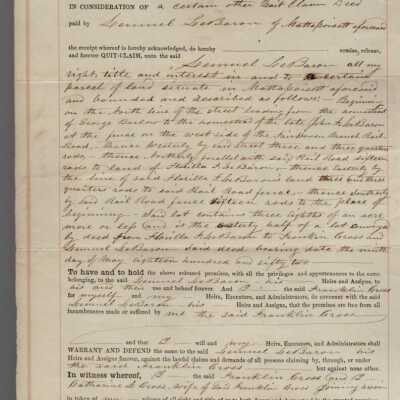 IN CONSIDERATION OF a certain other Quit Claim Deed
paid by Lemuel LeBaron of Mattapoisett aforesaid
the receipt whereof is hereby acknowledged, do hereby remise, release,
and forever QUIT-CLAIM, unto the said
Lemuel LeBaron all my
right, title and interest in and to a certain
parcel of land situate in Mattapoisett aforesaid
and bounded and described as follows:- Beginning
on the north line of the street leading from the homestead
of George Barlow to the homestead of the late John A LeBaron
at the fence on the west side of the Fairhaven Branch Rail
Road, thence westerly by said street three and three quarters
rods, thence northerly parallel with said Rail Road sixteen
rods to land of Horilla LeBaron, thence easterly by
the line of said LeBaron land three and three
quarters rods to said Rail Road fence, thence southerly
by said Rail Road fence sixteen rods to the place of
Beginning - Said lot contains three eighths of an acre
more or less and is the half of a lot conveyed
by deed from LeBaron to Franklin Cross and
Lemuel LeBaron said deed bearing date the ninth
day of May eighteen hundred and fifty two
To have and to hold the above released premises, with all the privileges and appurtenances to the same
belonging, to the said Lemuel LeBaron his Heirs and Assigns, to
his and their use and behoof forever. And I the said Franklin Cross
for myself and my Heirs, Executors, and Administrators, do covenant with the said
Lemuel LeBaron his Heirs and Assigns, that the premises are free from all
incumbrances made or suffered by me the said Franklin Cross
and that I will and my Heirs, Executors, and Administrators shall
WARRANT AND DEFEND the same to the said Lemuel LeBaron his
Heirs and Assigns forever, against the lawful claims and demands of all persons claiming by, through, or under
the said Franklin Cross but against none other.
In witness whereof, I the said Franklin Cross and I
Catharine S Cross, wife of said Franklin Cross